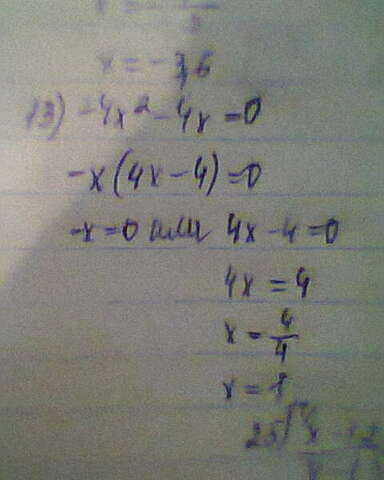 x = -3,6
13) -4x² - 4x = 0
-x(4x - 4) = 0
-x = 0 или 4x - 4 = 0
4x = 4
x = 4/4
x = 1
25)